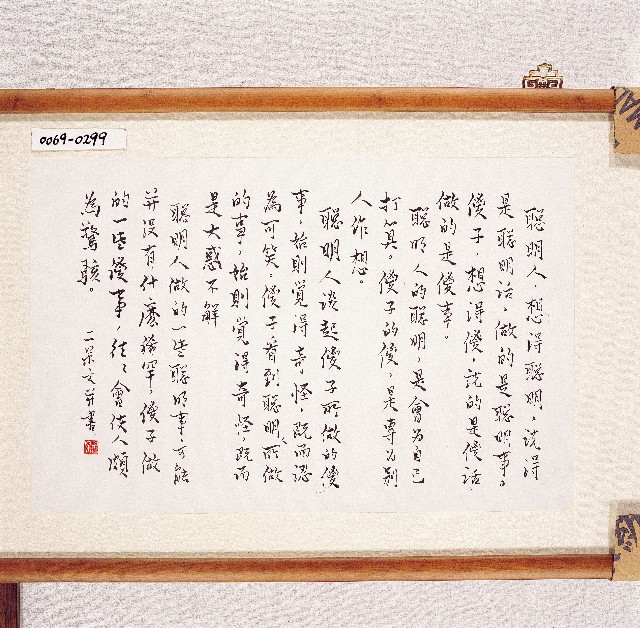 0069-0299
聰明人，想得聰明，說得
是聰明話，做的是聰明事。
傻子，想得傻，說的是傻話，
做的是傻事。
聰明人的聰明，是會為自己
打算。傻子的傻，是專為別
人作想。
聰明人談起傻子所做的傻
事，始則覺得奇怪，既而認
為可笑，傻子看到聰明人所做
的事，始則覺得奇怪，既而
是大惑不解
聰明人做的一些聰明事，可能
並沒有什麼稀罕，傻子做
的一些傻事，往往會使人頗
為驚駭。
二呆文並書